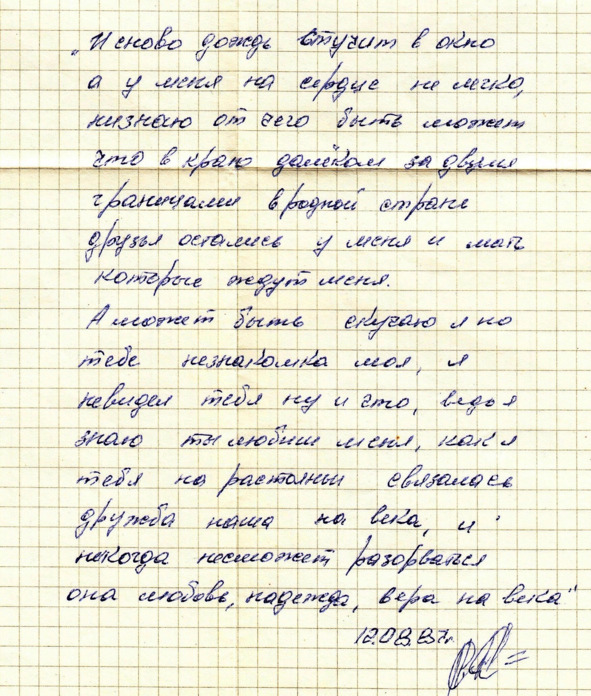 „И сново дождь стучит в окно
а у меня на сердце не легко,
незнаю от чего быть может
что в краю далёком за двумя
границами в родной стране
друзья остались у меня и мать
которые ждут меня.
А может быть скучаю я по
тебе незнакомка моя, я
невидел тебя ну и что, ведь я
знаю ты любиш меня, как я
тебя на растоянии связалась
дружба наша на века, и
некогда несможет разорваться
она любовь, надежда, вера на века"
12.08.87г.